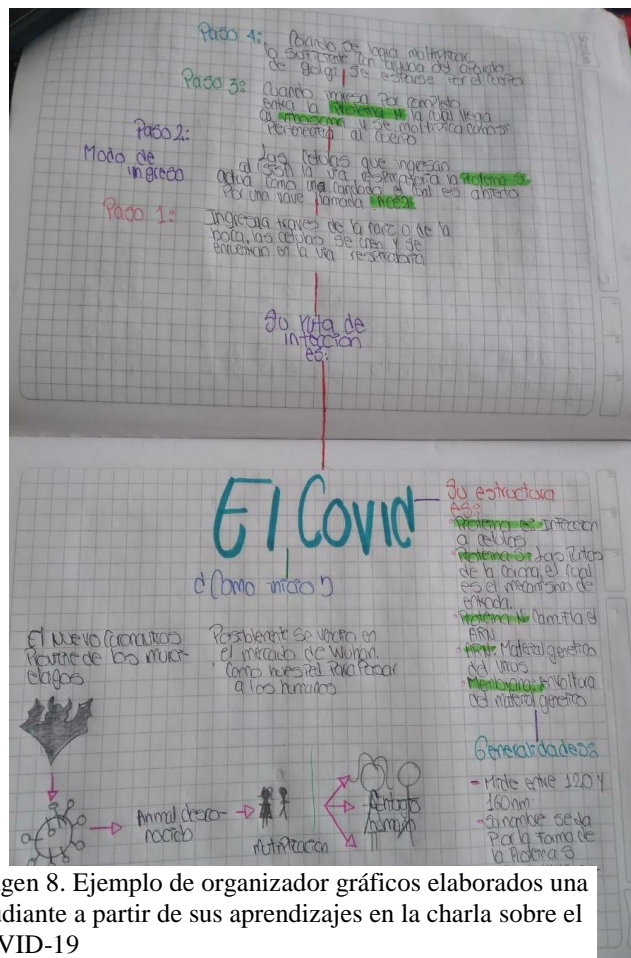 Paso 4:
Cuando se logra multiplicar
lo suficiente con ayuda del aparato
de golgi se esparse por el cuerpo
Paso 3:
Cuando ingresa por completo
entra la Proteina N la cual llega
al y se multiplica como si
Perteneciera al cuerpo
Paso 2:
Modo de
ingreso
Las celulas que ingresan
a la via respiratoria la Proteina S
actua como una candado el cual es abierto
Por una llave llamada
Paso 1:
Ingresa a traves de la nariz o de la
boca, las celulas se y se
encuentran en la via respiratoria
Su ruta de
infeccion
es:
El Covid
¿Como inicio?
El Nuevo Coronavirus
Proviene de los murcie-
elagos
Posiblemente se vendio en
el mercado de Wuhan.
Como huesped Para Pasar
a los humanos
Animal desco-
nocido
Contagio
humano
Su estructura
es:
Proteina E: Infeccion
a celulas
Proteina S: Las Puntas
de la corona, el cual
es el mecanismo de
entrada.
Proteina N: Camufla el
ARN
ARN: Material genetico
del virus
Membrana: Envoltura
del material genetico
Generalidades:
- Mide entre 120 Y
160 nm
- Su nombre se da
Por la forma de
la Proteina S
gen 8. Ejemplo de organizador gráficos elaborados una
udiante a partir de sus aprendizajes en la charla sobre el
VID-19